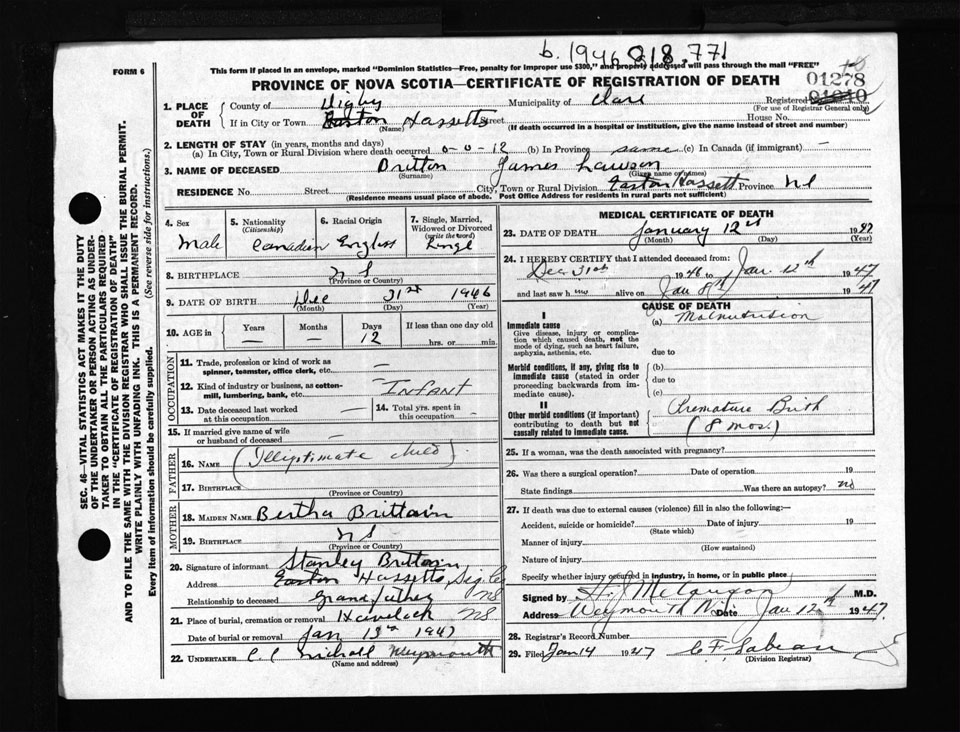 b. 1946 818.771
FORM 6
This form if placed in an envelope, marked "Dominion Statistics—Free, penalty for improper use $300," and properly addressed will pass through the mail "FREE"
PROVINCE OF NOVA SCOTIA—CERTIFICATE OF REGISTRATION OF DEATH
01278
1. PLACE OF DEATH
County of Digby Municipality of Clare Registered
(For use of Registrar General only)
If in City or Town Easton Hassetts Street House No.
(Name) (If death occurred in a hospital or institution, give the name instead of street and number)
2. LENGTH OF STAY (in years, months and days)
(a) In City, Town or Rural Division where death occurred 0-0-12 (b) In Province same (c) In Canada (if immigrant) —
3. NAME OF DECEASED Britton James Lawson
(Surname) (Given name or names)
RESIDENCE No. Street City, Town or Rural Division Easton Hassett Province NS
(Residence means usual place of abode. Post Office Address for residents in rural parts not sufficient)
4. Sex
Male
5. Nationality
(Citizenship)
Canadian
6. Racial Origin
English
7. Single, Married, Widowed or Divorced
(write the word)
Single
8. BIRTHPLACE N S
(Province or Country)
9. DATE OF BIRTH Dec 31st 1946
(Month) (Day) (Year)
10. AGE in
Years Months Days If less than one day old
— — 12 hrs. or min.
OCCUPATION
11. Trade, profession or kind of work as spinner, teamster, office clerk, etc. —
12. Kind of industry or business, as cotton-mill, lumbering, bank, etc. Infant
13. Date deceased last worked at this occupation —
14. Total yrs. spent in this occupation —
15. If married give name of wife or husband of deceased —
FATHER
16. Name (Illegitimate child)
17. Birthplace
(Province or Country)
MOTHER
18. Maiden Name Bertha Brittain
19. Birthplace N S
(Province or Country)
20. Signature of informant Stanley Brittain
Address Easton Hassetts Dig Co
Relationship to deceased Grandfather NS
21. Place of burial, cremation or removal Havelock NS
Date of burial or removal Jan 13th 1947
22. UNDERTAKER Weymouth
(Name and address)
MEDICAL CERTIFICATE OF DEATH
23. DATE OF DEATH January 12th 1947
(Month) (Day) (Year)
24. I HEREBY CERTIFY that I attended deceased from:
Dec 31st 1946 to Jan 12th 1947
and last saw h im alive on Jan 8th 1947
CAUSE OF DEATH
I
Immediate cause
Give disease, injury or complication which caused death, not the mode of dying, such as heart failure, asphyxia, asthenia, etc.
(a) Malnutrition
due to
Morbid conditions, if any, giving rise to immediate cause (stated in order proceeding backwards from immediate cause).
(b)
due to
(c)
II
Other morbid conditions (if important) contributing to death but not causally related to immediate cause.
Premature Birth
(8 mos.)
25. If a woman, was the death associated with pregnancy?
26. Was there a surgical operation? Date of operation 19
State findings Was there an autopsy? no
27. If death was due to external causes (violence) fill in also the following:—
Accident, suicide or homicide? Date of injury 19
(State which)
Manner of injury
(How sustained)
Nature of injury
Specify whether injury occurred in industry, in home, or in public place
Signed by M.D.
Address Weymouth N.S. Date Jan 12th 1947
28. Registrar's Record Number
29. Filed Jan 14 1947 C F Sabean
(Division Registrar)
SEC. 46—VITAL STATISTICS ACT MAKES IT THE DUTY
OF THE UNDERTAKER OR PERSON ACTING AS UNDER-
TAKER TO OBTAIN ALL THE PARTICULARS REQUIRED
IN THE "CERTIFICATE OF REGISTRATION OF DEATH"
AND TO FILE THE SAME WITH THE DIVISION REGISTRAR WHO SHALL ISSUE THE BURIAL PERMIT.
WRITE PLAINLY WITH UNFADING INK. THIS IS A PERMANENT RECORD.
Every item of information should be carefully supplied. (See reverse side for instructions.)